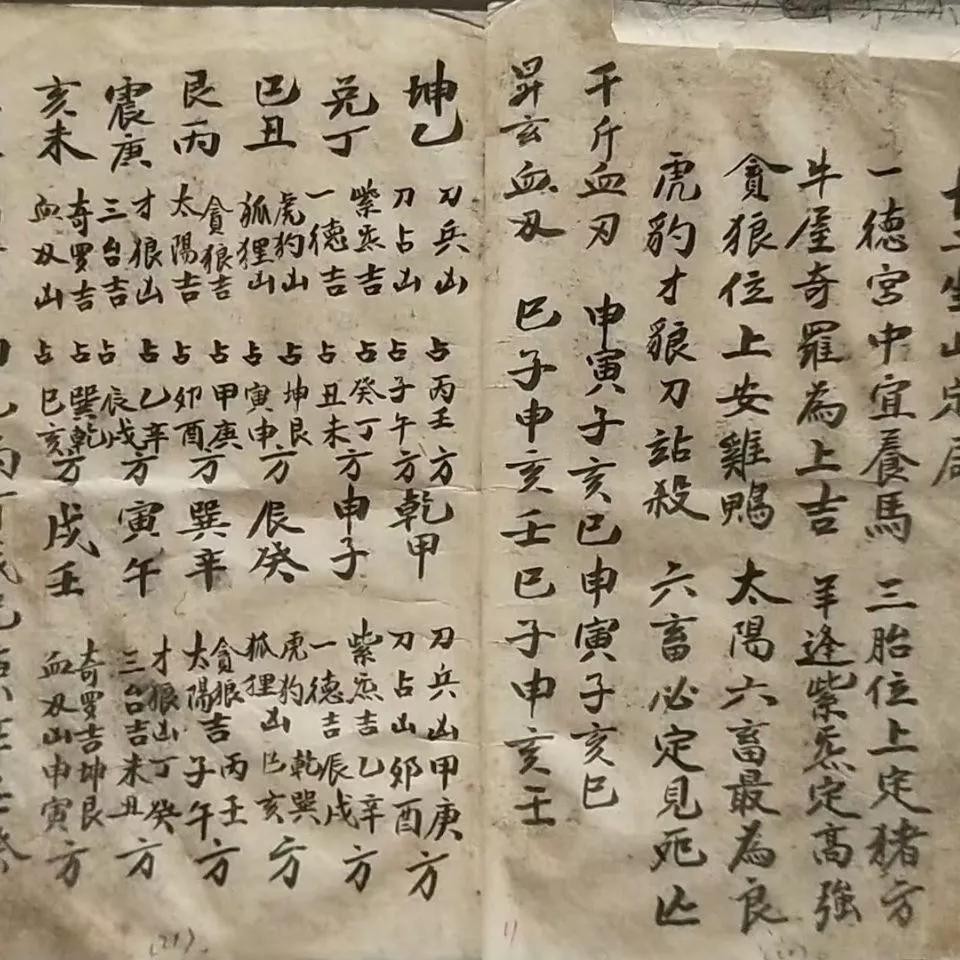 一德宮中宜養馬 三胎位上定猪方
牛屋奇羅為上吉 羊逢紫炁定高強
貪狼位上安雞鴨 太陽六畜最為良
虎豹才狼刀站殺 六畜必定見死亾
千斤血刃 申寅子亥巳申寅子亥巳
昇玄血刄 巳子申亥壬巳子申亥壬
坤乙 刀兵凶 刀占凶 占丙壬 占子午方 乾甲 刀兵凶甲庚 刀占凶卯酉方
兑丁 紫炁吉 一德吉 占癸丁 占丑未方 申子 紫炁吉乙辛 一德吉辰戌方
巳丑 虎豹凶 狐狸凶 占坤艮 占寅申方 辰癸 虎豹乾巽 狐狸凶巳亥方
艮丙 貪狼吉 太陽吉 占甲庚 占卯酉方 巽辛 貪狼吉丙壬 太陽子午方
震庚 才狼凶 三台吉 占乙辛 占辰戌方 寅午 才狼凶丁癸 三台吉未丑方
亥未 奇罗吉 血刄凶 占巽乾 占巳亥方 戌壬 奇罗吉坤艮 血刄凶申寅方
(21)